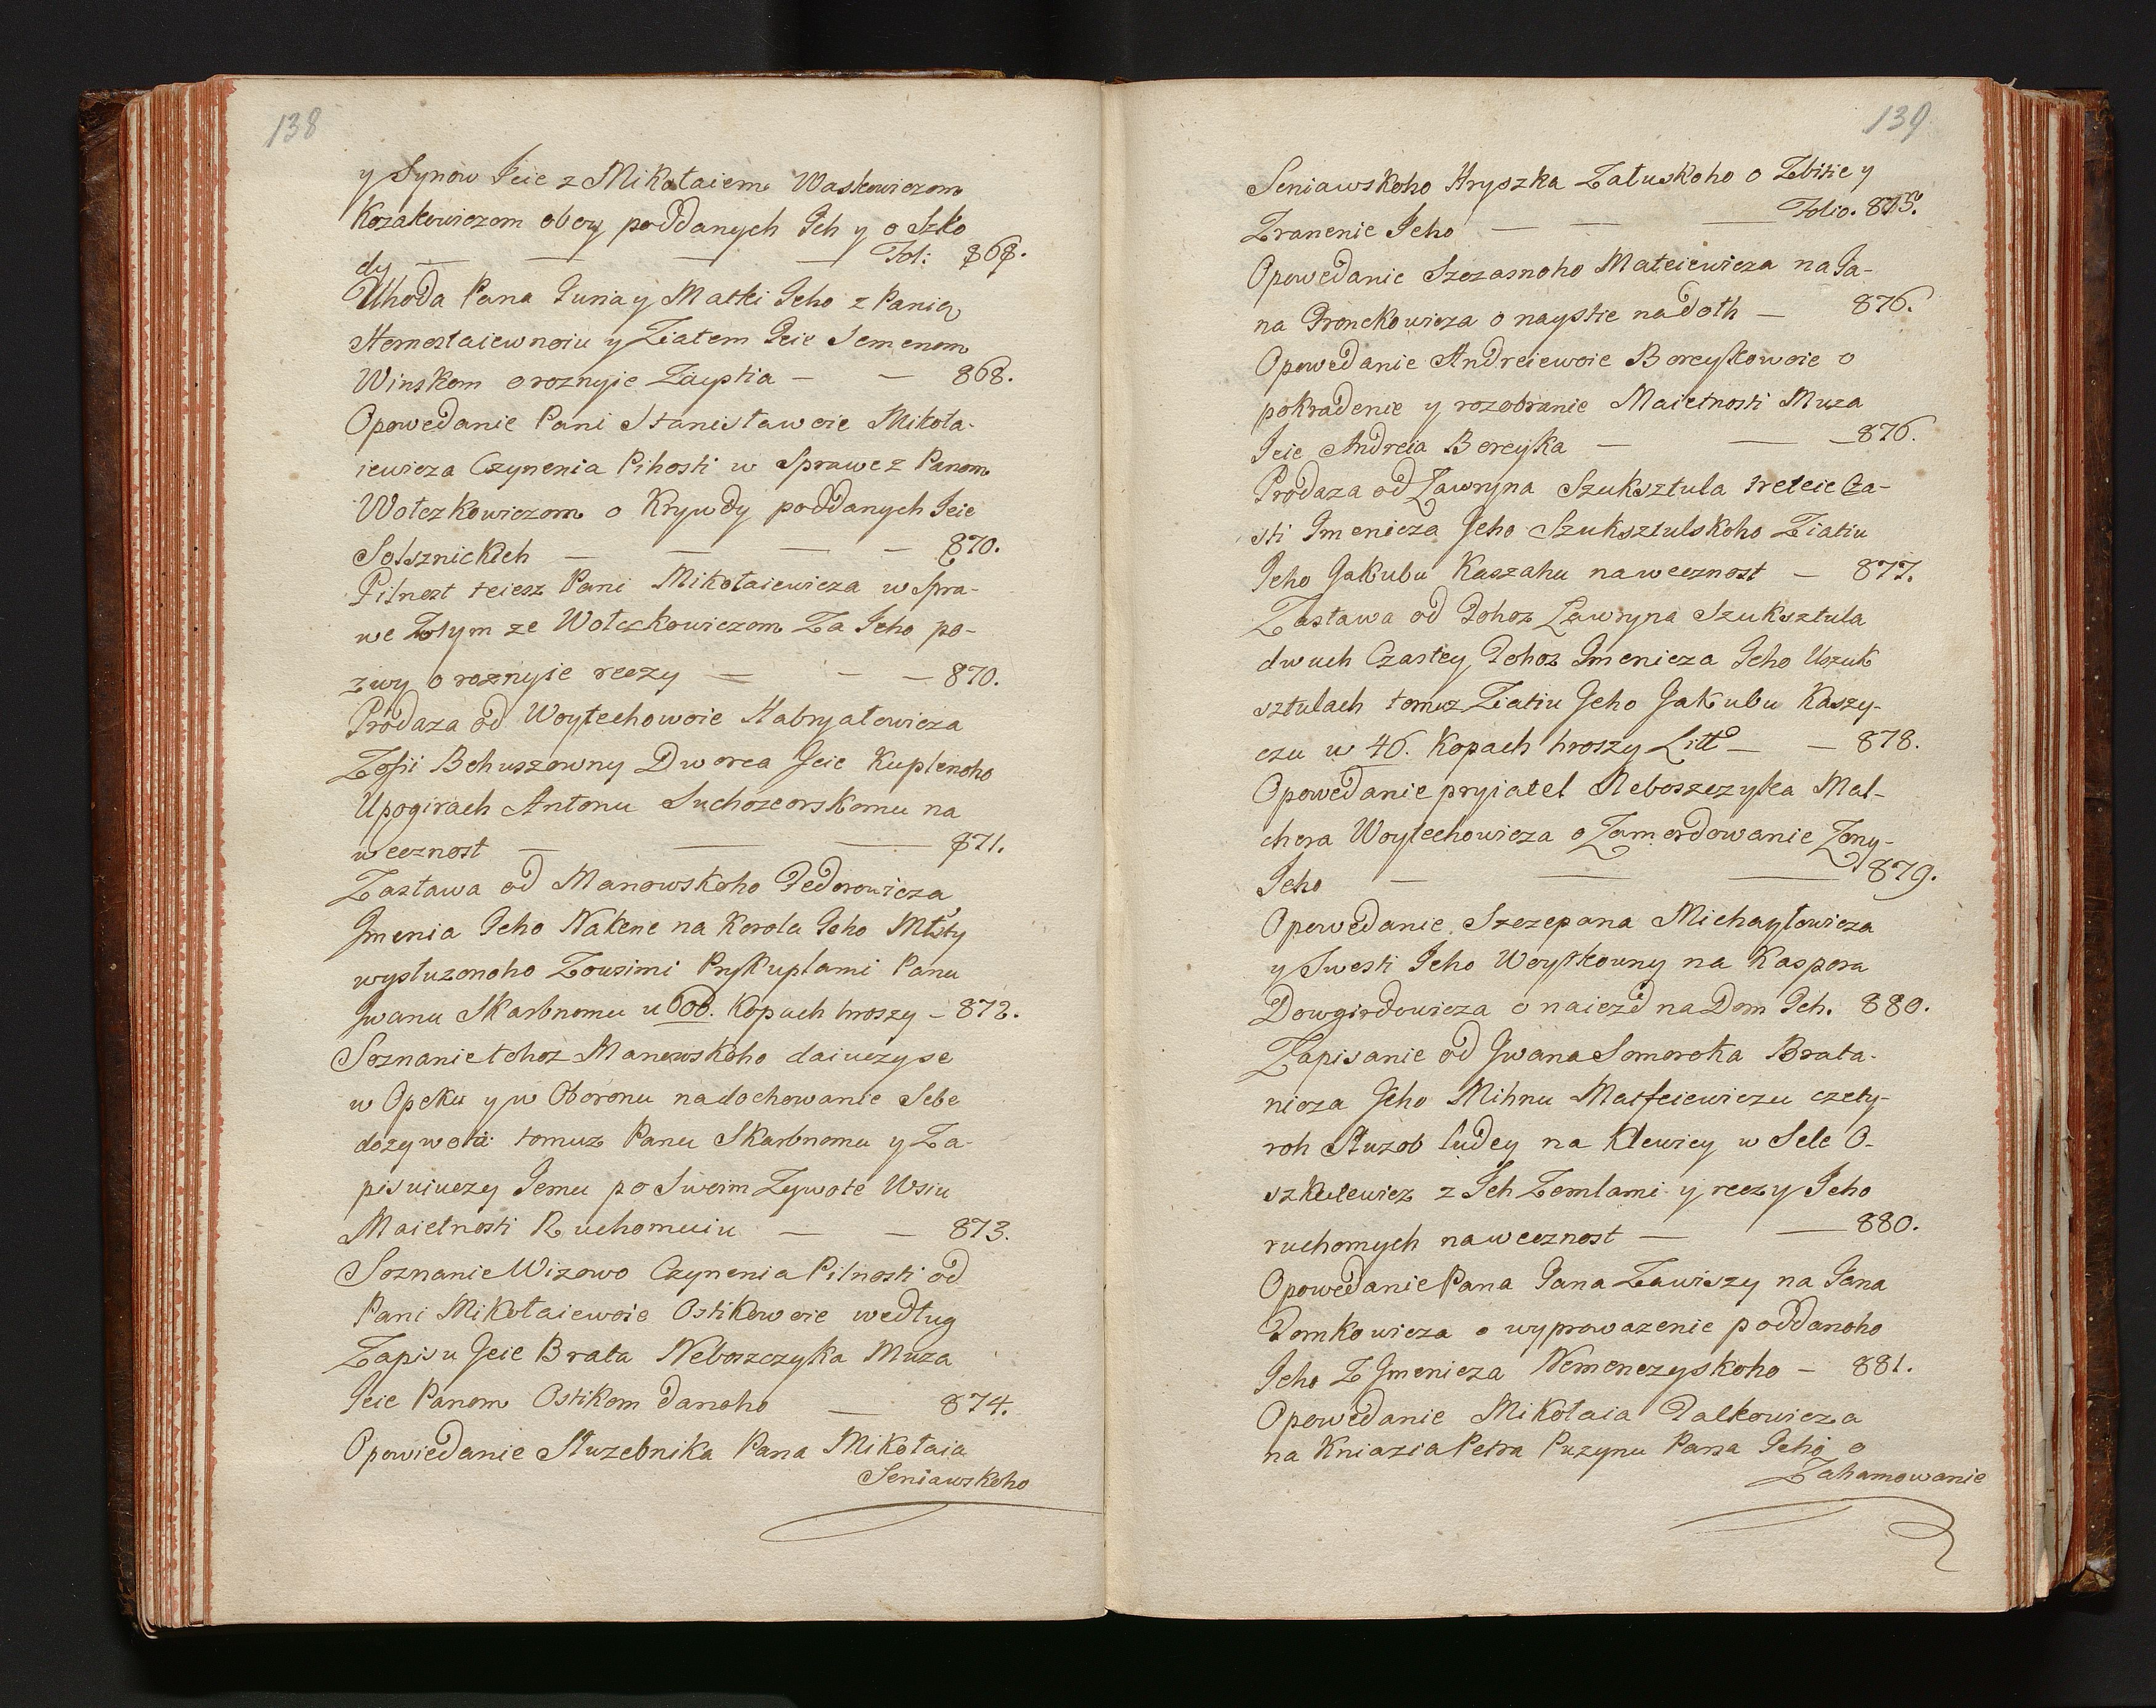 138
y Synow Jeie z Mikołaiem Waskowiczom
Kozakowiczom oboy poddanych Jeh y o Szko
dy — — — — Fol: 868.
Uhoda Pana Juria y Matki Jeho z Panią
Hornostaiewnoiu y Ziatem Jeie Semenom
Winskom o roznyie Zayptia — — 868.
Opowedanie Pani Stanisławoie Mikoła-
iewicza Czynenia Pilnosti w Sprawe z Panom
Wołczkowiczom o Krywdy poddanych Jeie
Solsznickich — — — — 870.
Pilnost teiesz Pani Mikołaiewicza w Spra-
we Zotym ze Wołczkowiczom Za Jeho po-
zwy o roznyie reczy — — — 870.
Prodaza od Woytechowoie Habryałowicza
Zofii Bohuszowny Dworca Jeie Kuplenoho
Upogirach Antonu Suchozeorskomu na
wecznost — — — 871.
Zastawa od Manowskoho Fedorowicza
Jmenia Jeho Nakene na Korola Jeho Młsty
wysłuzonoho Zowsimi Prykuplami Panu
Jwanu Skarbnomu u 600. Kopach hroszy – 872.
Soznanie tohoz Manowskoho daiuczy se
w Opeku y w Oboronu na dochowanie Sebe
dozywota tomuz Panu Skarbnomu y Za-
pisuiuczy Jemu po Swoim Zywote Wsiu
Maietnosti Ruchomuiu — — 873.
Soznanie Wizowo Czynenia Pilnosti od
Pani Mikołaiewoie Ostikowoie według
Zapisu Jeie Brata Neboszczyka Muza
Jeie Panom Ostikom danoho — 874.
Opowiedanie Słuzebnika Pana Mikołaia
Seniawskoho
139
Seniawskoho Hryszka Załuskoho o Zbitie y
Zranenie Jeho — — — Folio. 875.
Opowedanie Szczasnoho Mateiewicza na Ja-
na Gronckowicza o nayстie na Doth — 876.
Opowedanie Andreiewoie Boreykowoie o
pokradenie y rozobranie Maietnosti Muza
Jeie Andreia Boreyka — — — 876.
Prodaza od Ławryna Szuksztula treteie Cza-
sti Jmenicza Jeho Szuksztulskoho Ziatiu
Jeho Jakubu Kaszahu na wecznost — 877.
Zastawa od Tohoz Ławryna Szuksztula
dwuch Czastey Tohoz Jmenicza Jeho Uszuk
sztulach tomuz Ziatiu Jeho Jakubu Kaszy-
czu w 46. Kopach hroszy Litto — — 878.
Opowedanie pryiatel Neboszczyka Mal-
chera Woytechowicza o Zamordowanie Zony
Jeho — — — 879.
Opowedanie Szczepana Michayłowicza
y Swesti Jeho Woytkowny na Kaspora
Dowgirdowicza o naiezd na Dom Jch. 880.
Zapisanie od Jwana Somoroka Brata-
nicza Jeho Mihnu Matfeiewiczu czety-
roh Słuzob ludey na Klewicy w Sele O-
szkulewicz z Jch Zemlami y reczy Jeho
ruchomych na wecznost — — 880.
Opowedanie Pana Jana Zawiszy na Jana
Domkowicza o wyprowazenie poddanoho
Jeho Z Jmenicza Nemenczyskoho — 881.
Opowedanie Mikołaia Dalkowicza
na Kniazia Petra Puzynu Pana Jeho o
Zahamowanie